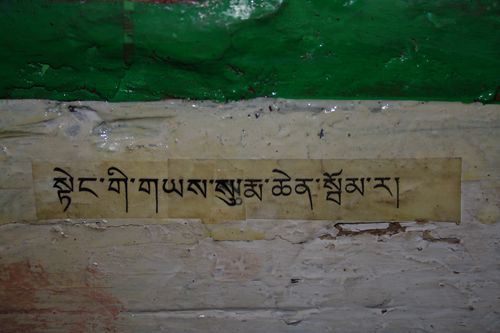 སྟེང་གི་གཡས་ རྨ་ཆེན་སྤོམ་ར།